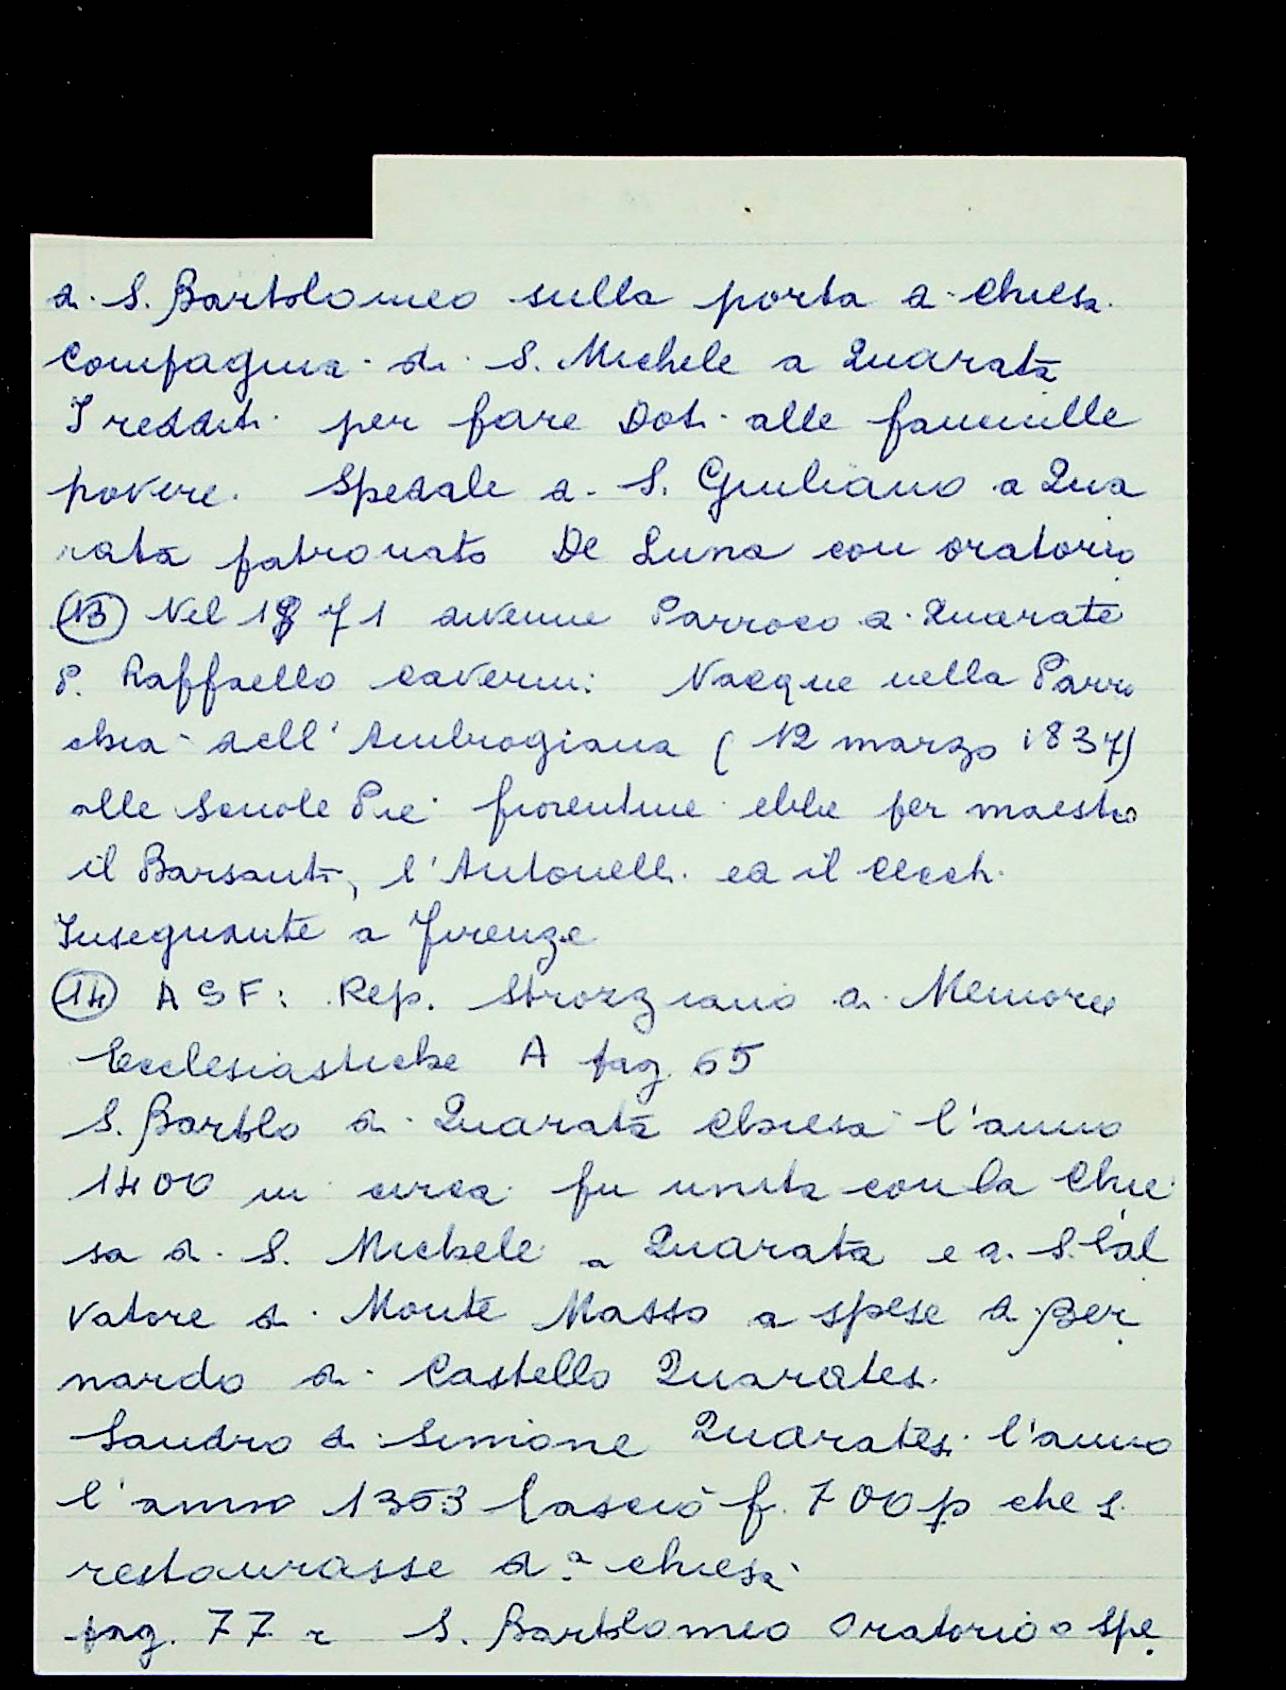 di S. Bartolomeo sulla porta di chiesa.
Compagnia di S. Michele a Quarata
I redditi per fare Doti alle fanciulle
povere. Spedale di S. Giuliano a Qua
rata patronato De Luna con oratorio
(13) Nel 1871 divenne Parroco di Quarate
P. Raffaello Caverni: Nacque nella Parro
chia dell'Ambrogiana (12 marzo 1837)
alle Scuole Pie fiorentine ebbe per maestro
il Barsanti, l'Antonelli ed il Cecchi.
Insegnante a Firenze
(14) ASF: Rep. Strozziano di Memorie
Ecclesiastiche A pag. 65
S. Bartolo di Quarata Chiesa l'anno
1400 in circa fu unita con la Chie
sa di S. Michele a Quarata e di S. Sal
vatore di Monte Masso a spese di Ber
nardo di Castello Quaratesi.
Sandro di Simone Quaratesi l'anno
l'anno 1353 lasciò f. 700 p che si
restaurasse d.ª chiesa
pag. 77 r S. Bartolomeo Oratorio o Spe